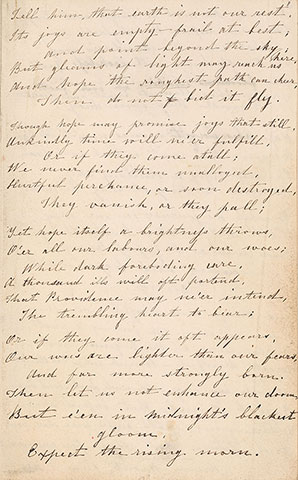 Tell him, that earth is not our rest
Its joys are empty - frail at best;
And point beyond the sky;
But gleams of light may reach us here,
And hope the roughest path can cheer,
Then do not bid it fly.
Though hope may promise joys that still
Unkindly time will ne'er fulfil,
Or if they come at all;
We never find them unalloyed,
Hurtful perchance, or soon destroyed,
They vanish, or they pall;
Yet hope itself a brightness throws,
O'er all our labours, and our woes;
While dark foreboding care,
A thousand ills will oft portend,
That Providence may ne'er intend,
The trembling heart to bear;
Or if they come it oft appears,
Our woes are lighter than our fears,
And far more strongly born.
Then let us not enhance our doom,
But e'en in midnight's blackest
gloom,
Expect the rising morn.